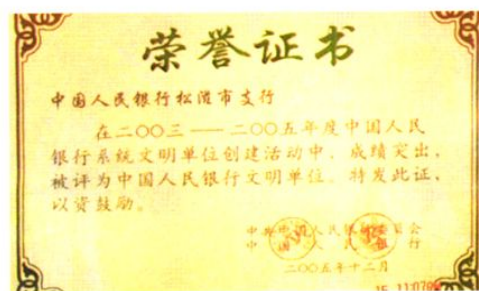 荣誉证书
中国人民银行松滋市支行
在二〇〇三——二〇〇五年度中国人民
银行系统文明单位创建活动中，成绩突出，
被评为中国人民银行文明单位。特发此证，
以资鼓励。
中国人民银行
二〇〇五年十二月